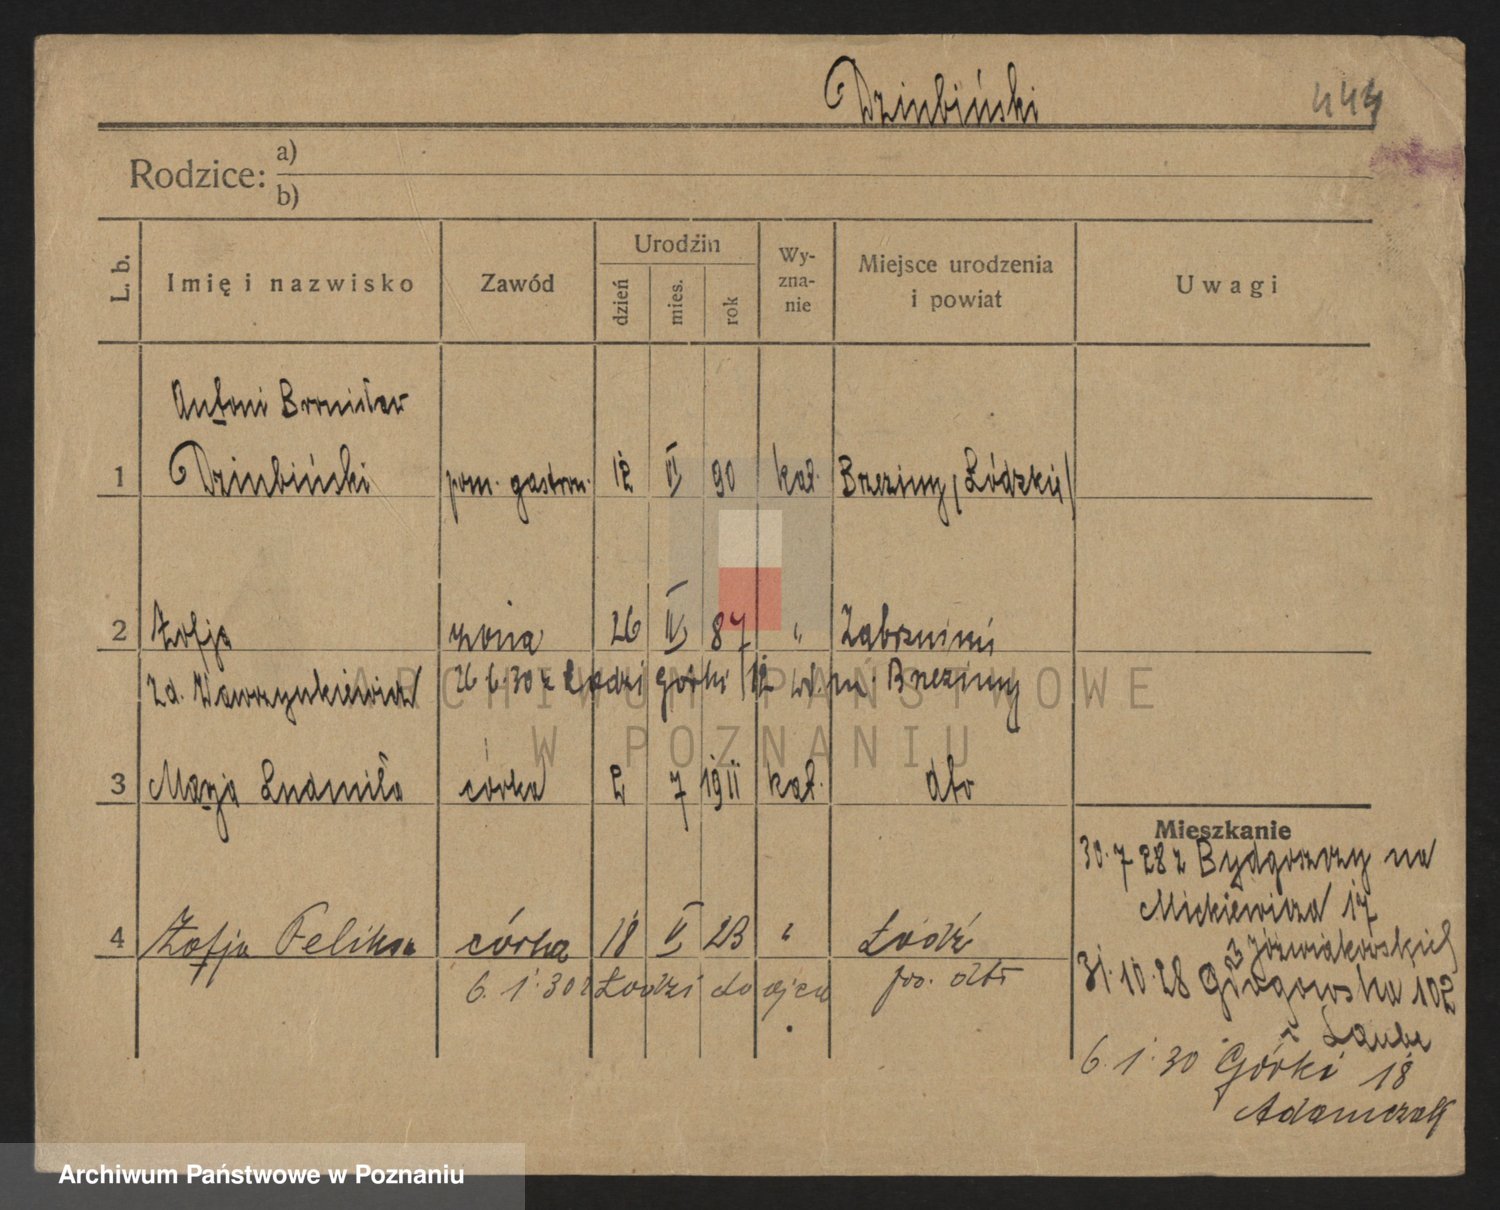 Dziubiński 444
Rodzice: a)
b)
L. b. Imię i nazwisko Zawód Urodzin dzień mies. rok Wy-zna-nie Miejsce urodzenia i powiat Uwagi
Antoni Bronisław
1 Dziubiński pom. gastron. 12 VI 90 kat. Brzeziny /Łódzkie/
2 Zofja żona 26 IV 87 "
zd. Wawrzynkiewicz 26 6.30 z Łodzi Górki 12 pw. Brzeziny
3 Marja Ludmiła córka 2 7 1911 kat. dto
Mieszkanie
30.7 28 z Bydgoszczy na
Mickiewicza 17
4 Zofja Feliksa córka 18 V 23 " Łódź
6.1.30 z Łodzi do ojca pw. dto
31.10.28 Głogowska 102
Laube
6.1.30 Górki 18
Adamczak
ARCHIWUM PAŃSTWOWE
W POZNANIU
Archiwum Państwowe w Poznaniu